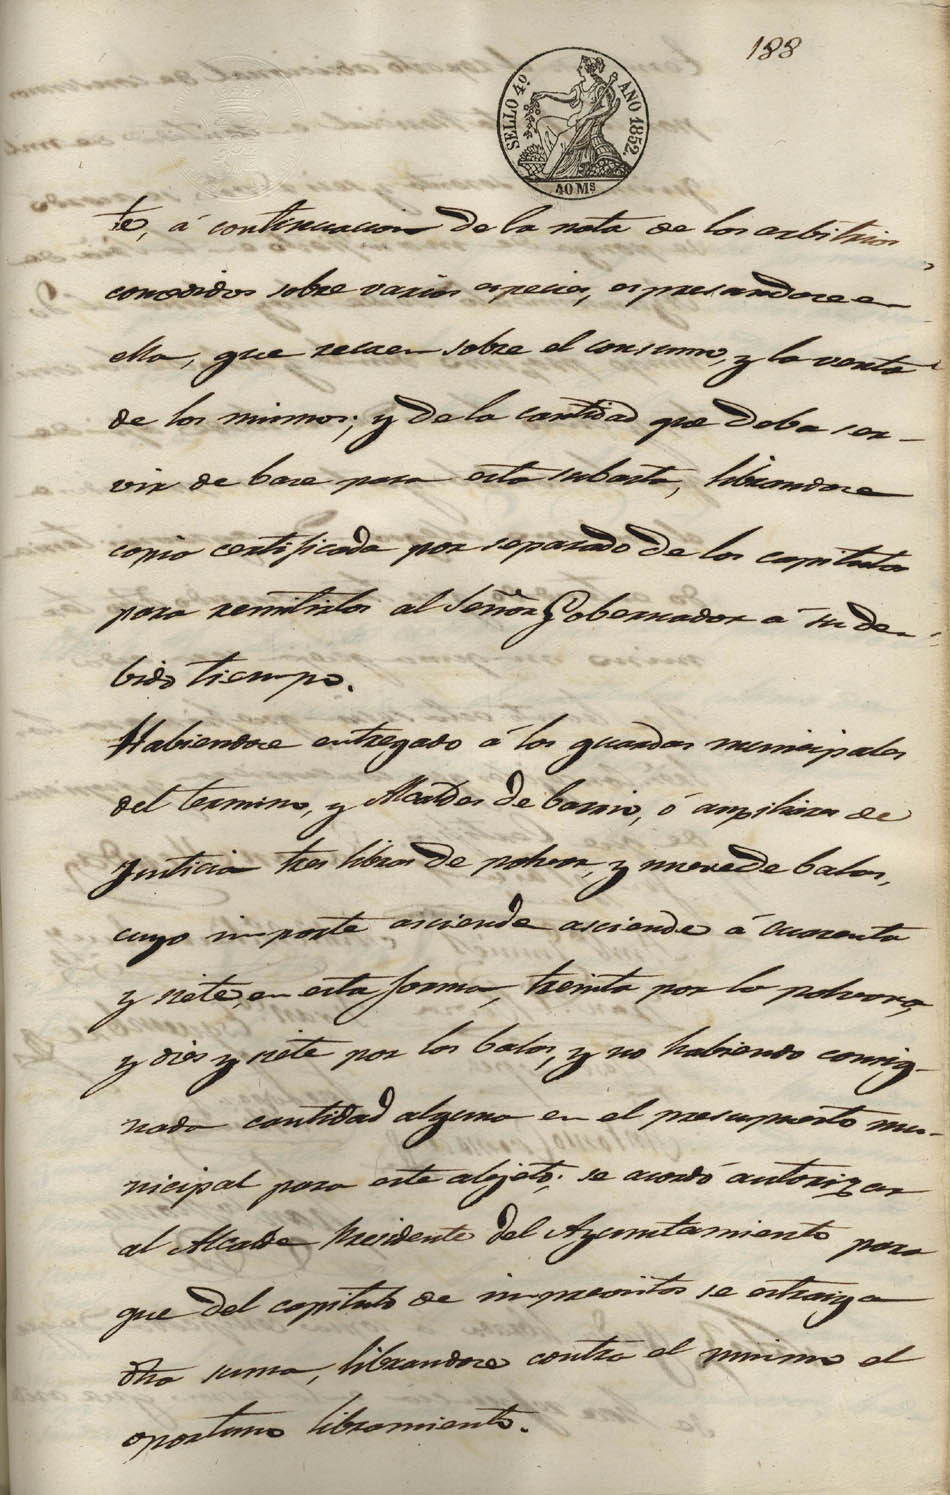 188
SELLO 4º AÑO 1852.
40 Ms
te, á continuacion de la nota de los arbitrios
concedidos sobre varias especies, espresandose en
ella, que recaen sobre el consumo, y la venta
de los mismos; y de la cantidad que deba ser-
vir de base para esta subasta, librandose
copia certificada por separado de los capitulos
para remitirlos al Señor Gobernador á su de-
bido tiempo.
Habiendose entregado á los guardas municipales
del termino, y Alcaldes de barrio, ó ausiliares de
Justicia tres libras de polvora, y nueve de balas,
cuyo importe asciende asciende á cuarenta
y siete, en esta forma, treinta por la polvora,
y dies y siete por las balas, y no habiendo consig-
nada cantidad alguna en el presupuesto mu-
nicipal para este objeto; se acordó autorizar
al Alcalde Presidente del Ayuntamiento para
que del capitulo de imprevistos se estraiga
dha suma, librandose contra el mismo el
oportuno libramiento.